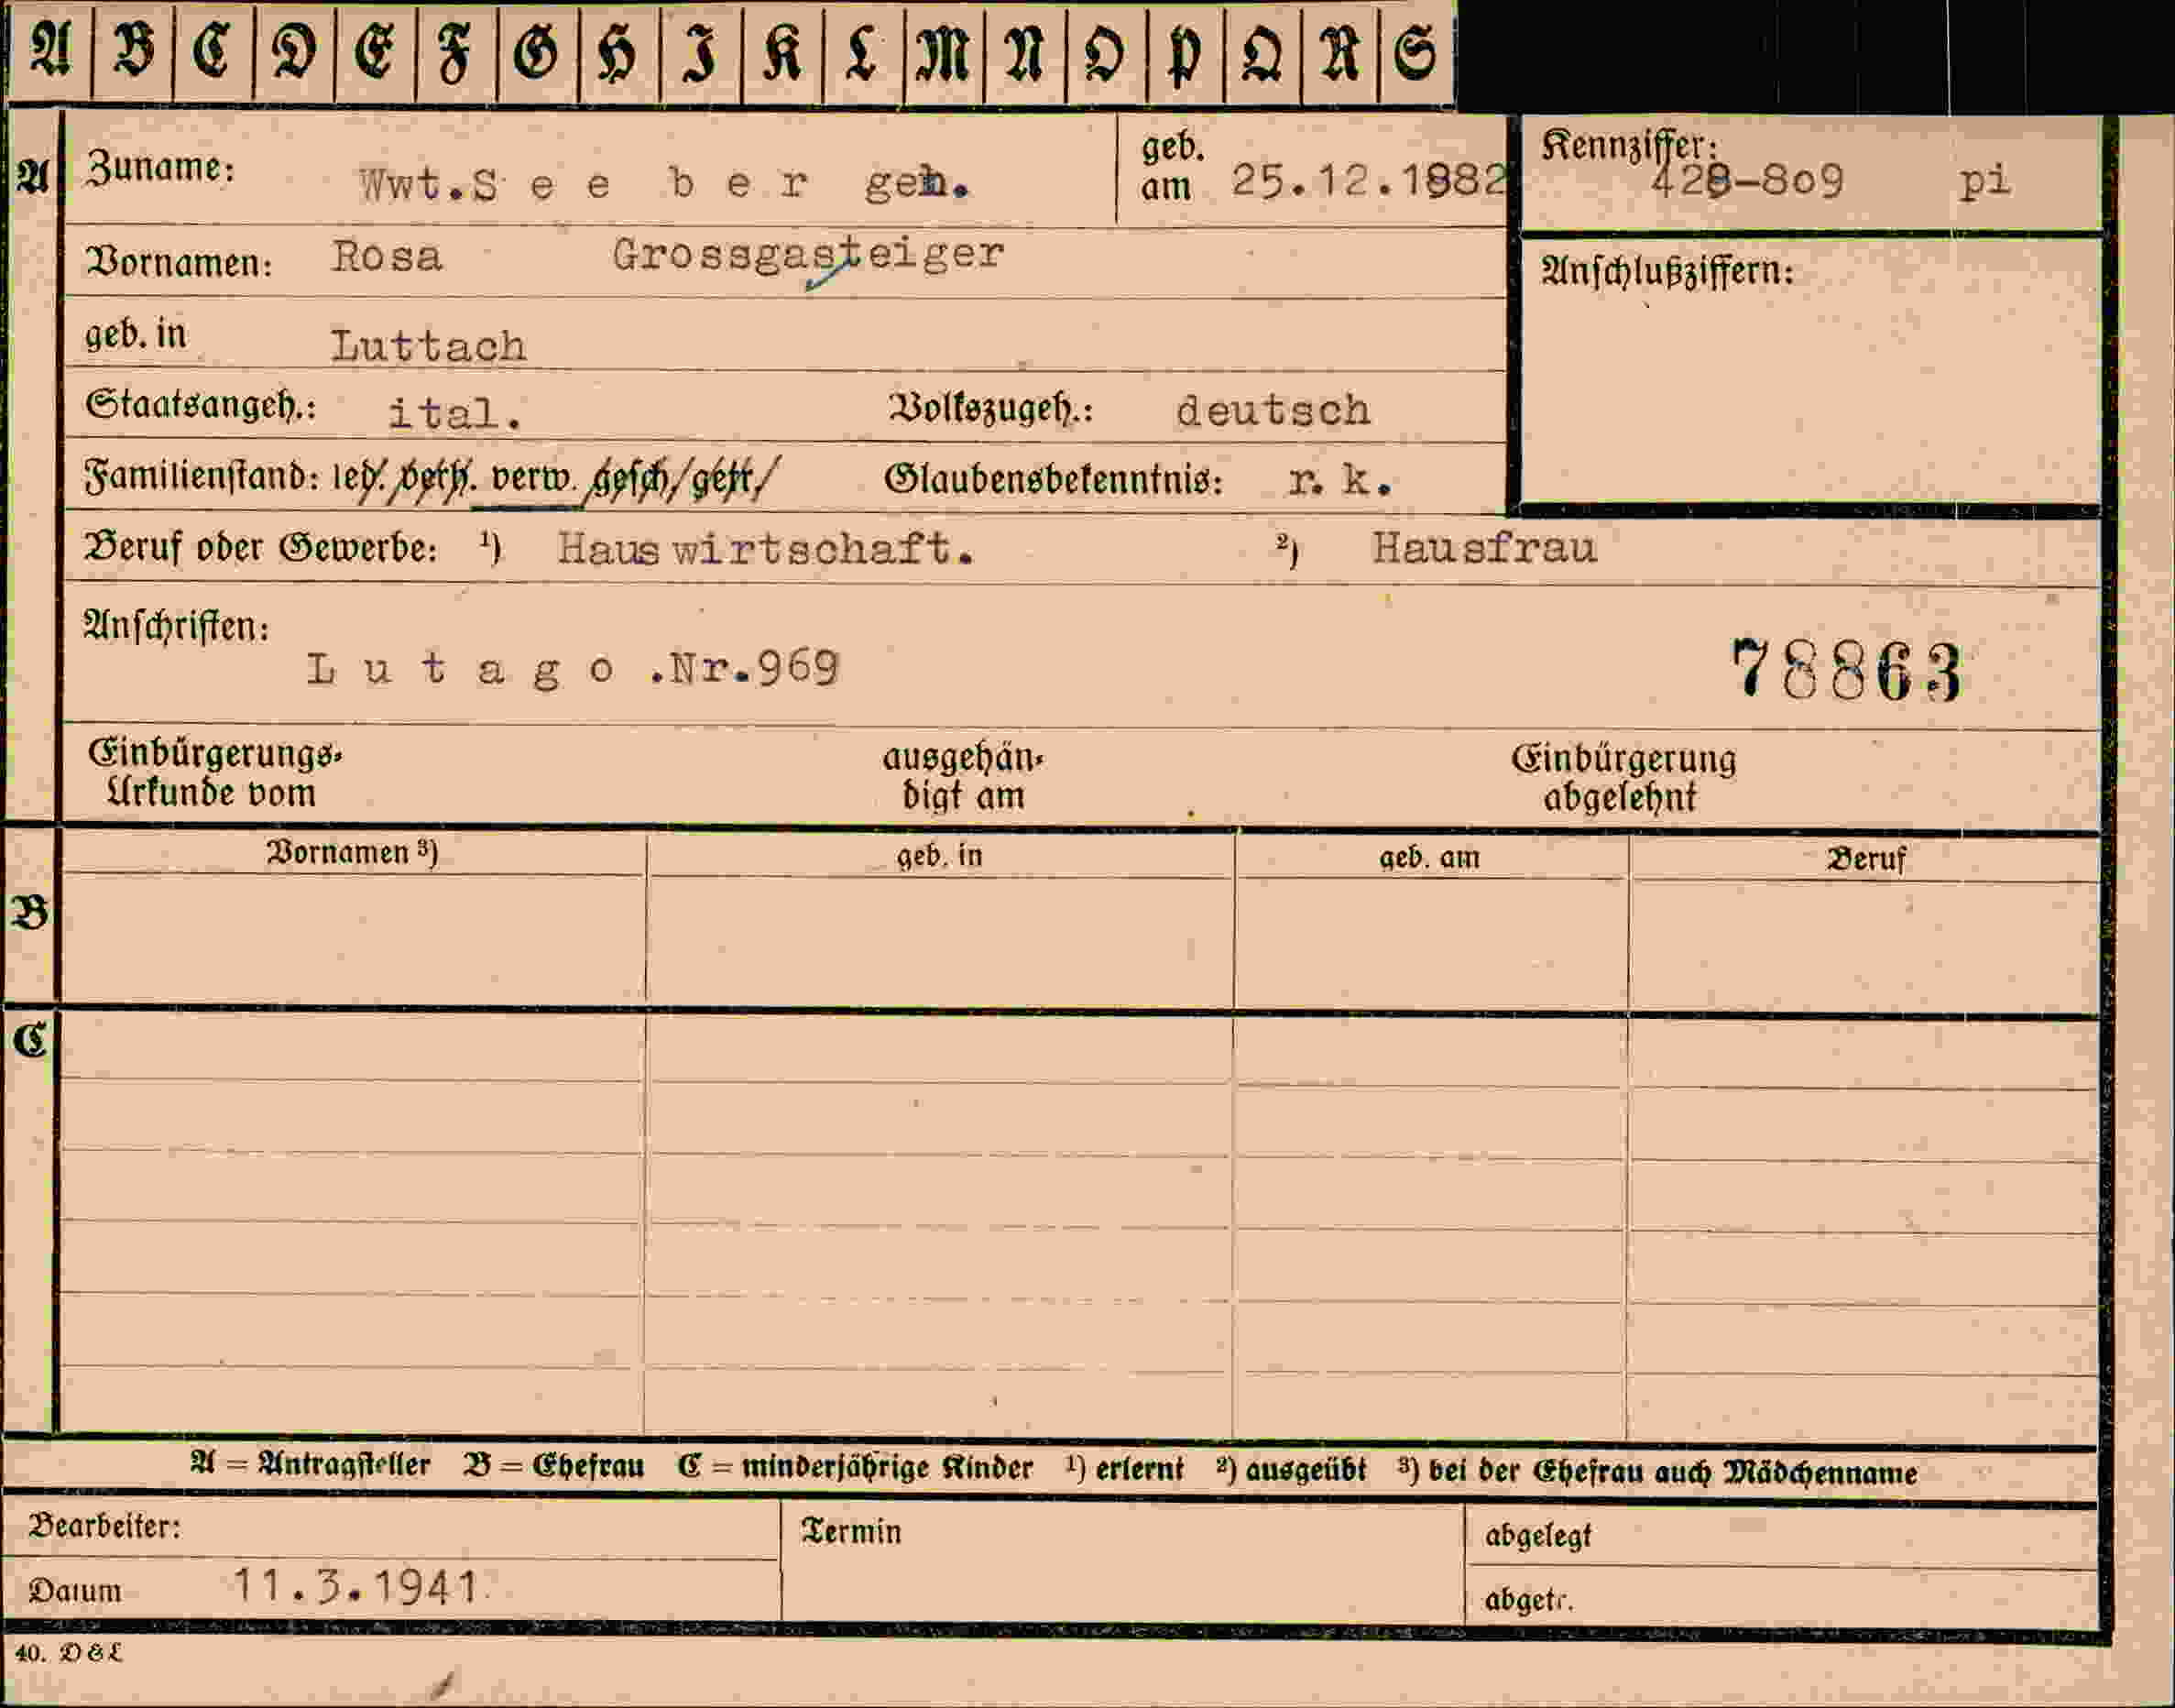 A B C D E F G H I K L M N O P Q R S
A Zuname: Wwt.S e e b e r geb. geb. am 25.12.1882 Kennziffer: 428-809 pi
Vornamen: Rosa Grossgasteiger Anschlußziffern:
geb. in Luttach
Staatsangeh.: ital. Volkszugeh.: deutsch
Familienstand: led. verh. verw. gesch/getr/ Glaubensbekenntnis: r. k.
Beruf oder Gewerbe: ¹) Hauswirtschaft. ²) Hausfrau
Anschriften:
L u t a g o .Nr.969 78863
Einbürgerungs- ausgehän- Einbürgerung
Urkunde vom digt am abgelehnt
Vornamen ³) geb. in geb. am Beruf
B
C
A = Antragsteller B = Ehefrau C = minderjährige Kinder ¹) erlernt ²) ausgeübt ³) bei der Ehefrau auch Mädchenname
Bearbeiter: Termin abgelegt
Datum 11.3.1941. abgetr.
40. D&L